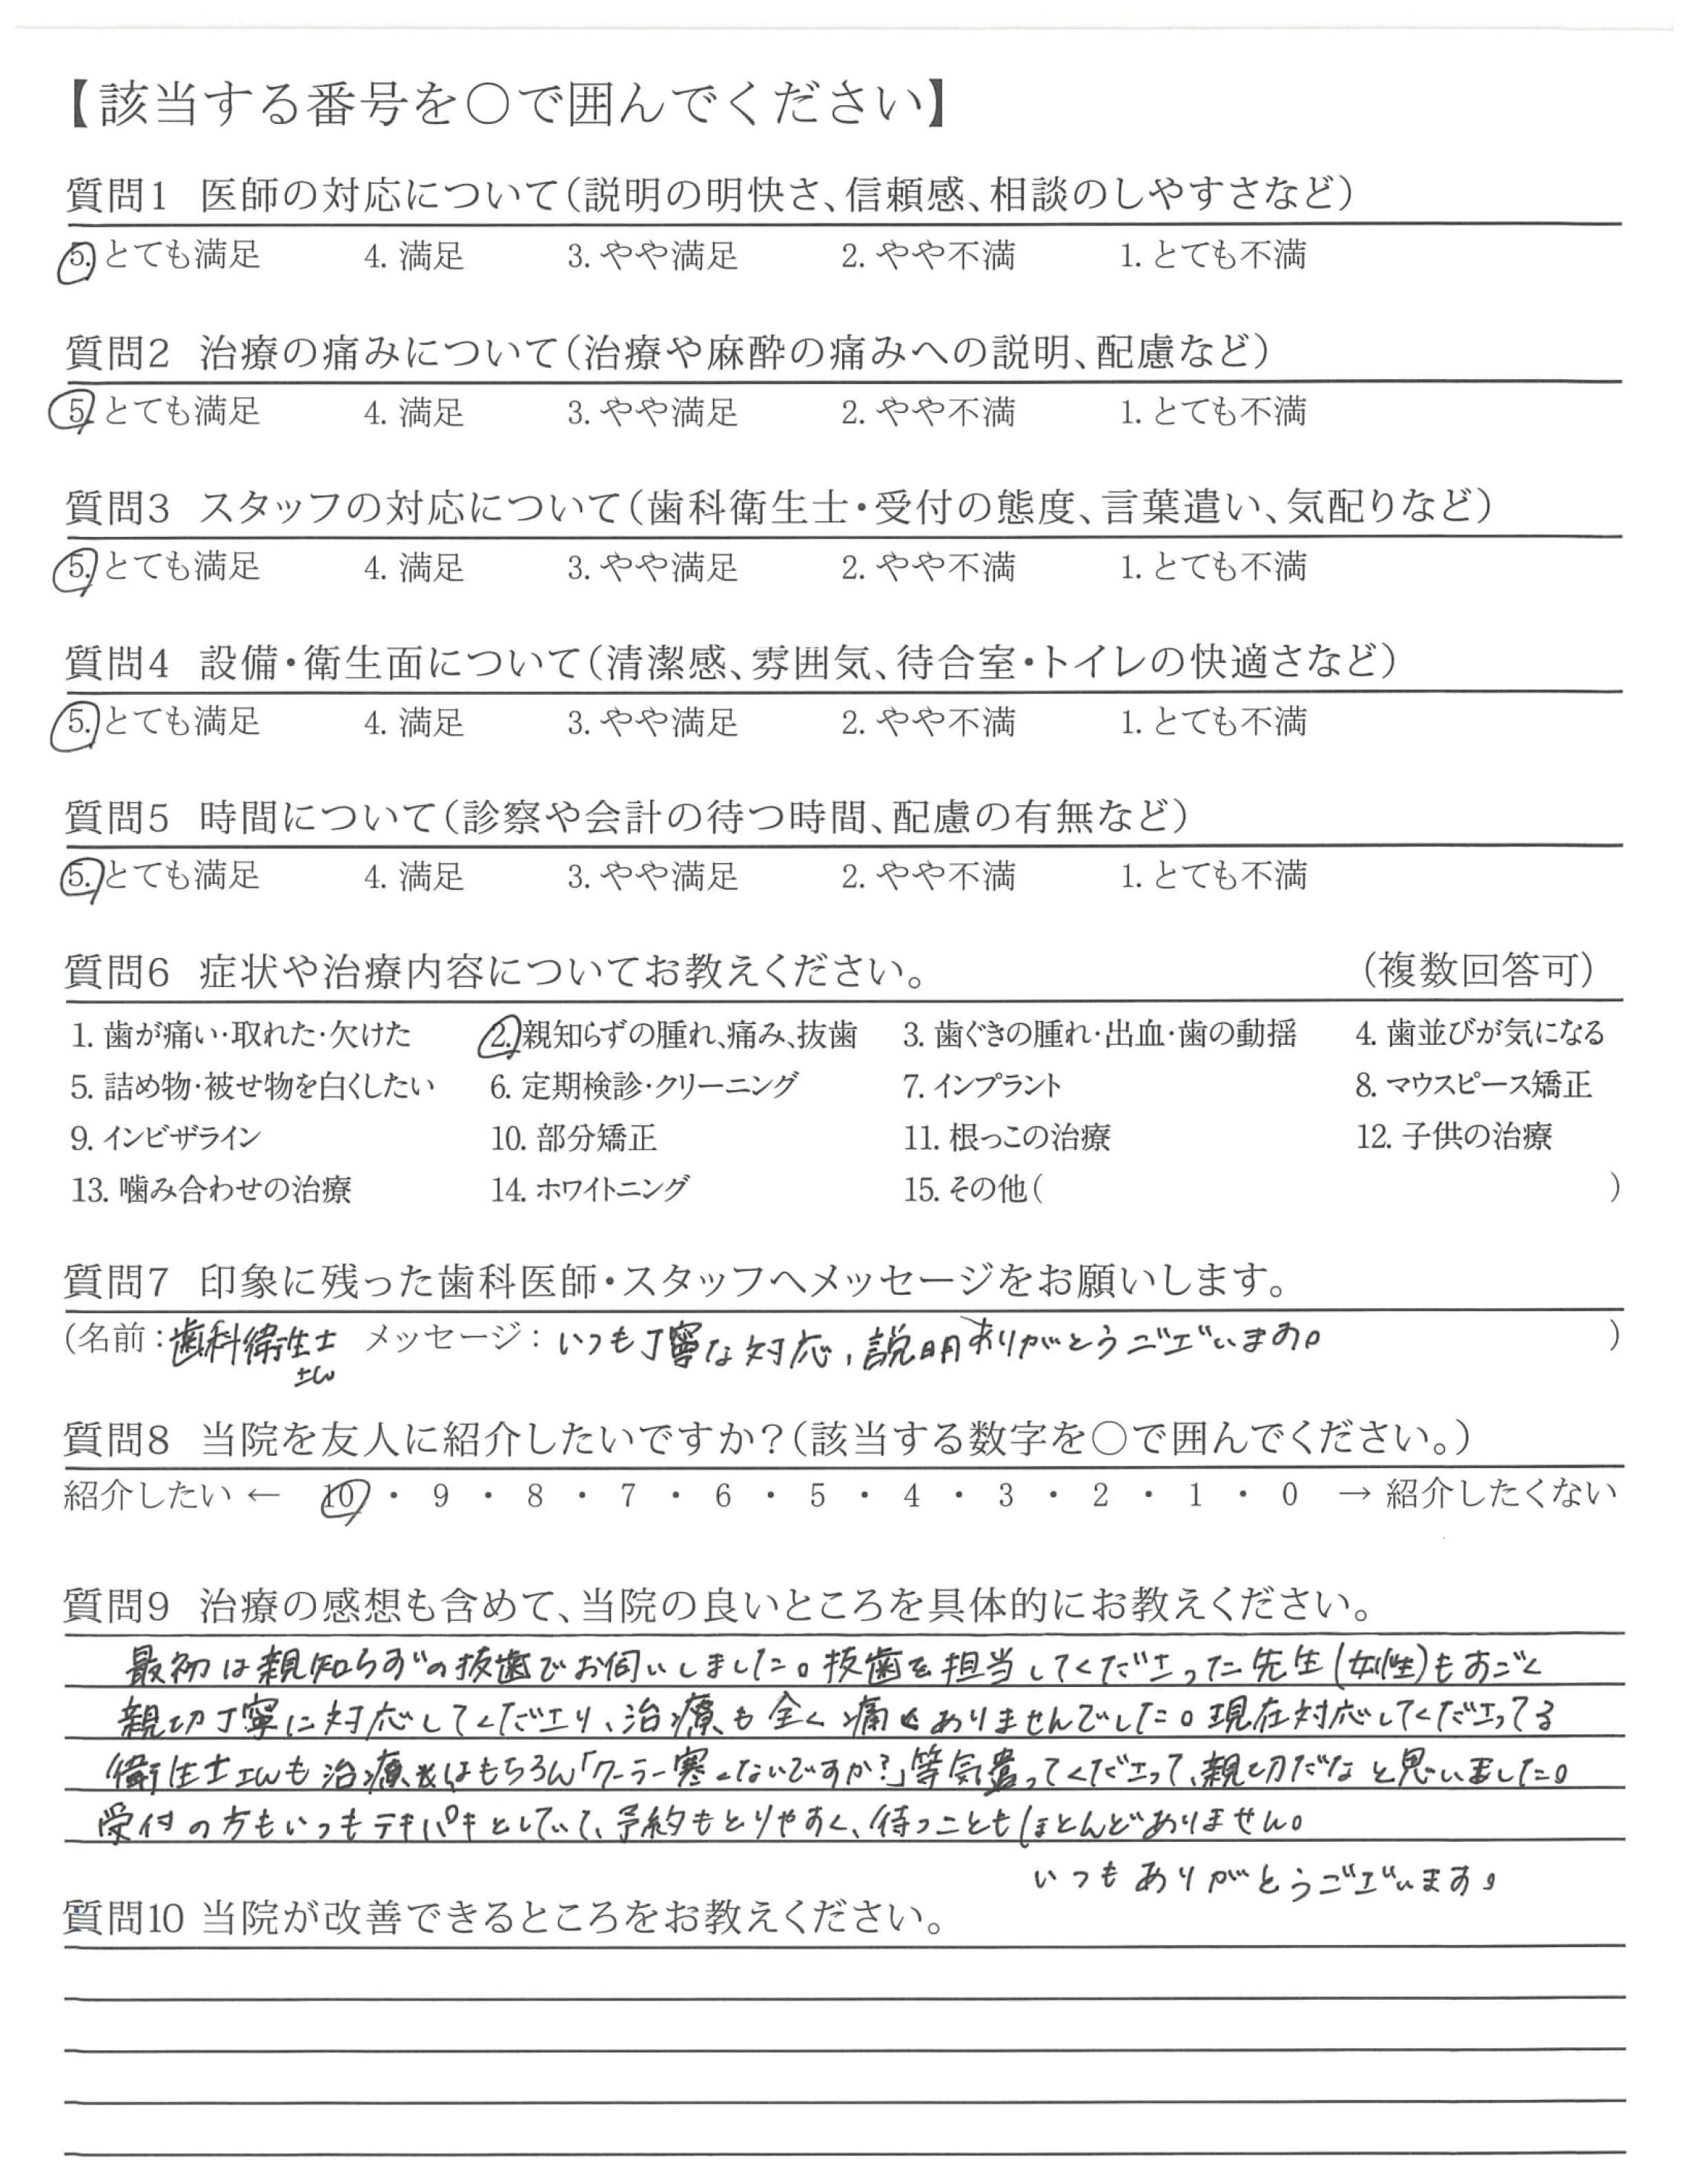 【該当する番号を〇で囲んでください】
質問1 医師の対応について(説明の明快さ、信頼感、相談のしやすさなど)
5. とても満足 4. 満足 3. やや満足 2. やや不満 1. とても不満
質問2 治療の痛みについて(治療や麻酔の痛みへの説明、配慮など)
5. とても満足 4. 満足 3. やや満足 2. やや不満 1. とても不満
質問3 スタッフの対応について(歯科衛生士・受付の態度、言葉遣い、気配りなど)
5. とても満足 4. 満足 3. やや満足 2. やや不満 1. とても不満
質問4 設備・衛生面について(清潔感、雰囲気、待合室・トイレの快適さなど)
5. とても満足 4. 満足 3. やや満足 2. やや不満 1. とても不満
質問5 時間について(診察や会計の待つ時間、配慮の有無など)
5. とても満足 4. 満足 3. やや満足 2. やや不満 1. とても不満
質問6 症状や治療内容についてお教えください。 (複数回答可)
1. 歯が痛い・取れた・欠けた 2. 親知らずの腫れ、痛み、抜歯 3. 歯ぐきの腫れ・出血・歯の動揺 4. 歯並びが気になる
5. 詰め物・被せ物を白くしたい 6. 定期検診・クリーニング 7. インプラント 8. マウスピース矯正
9. インビザライン 10. 部分矯正 11. 根っこの治療 12. 子供の治療
13. 噛み合わせの治療 14. ホワイトニング 15. その他( )
質問7 印象に残った歯科医師・スタッフへメッセージをお願いします。
(名前:歯科衛生士さん メッセージ:いつも丁寧な対応、説明ありがとうございます。 )
質問8 当院を友人に紹介したいですか?(該当する数字を〇で囲んでください。)
紹介したい ← 10 ・ 9 ・ 8 ・ 7 ・ 6 ・ 5 ・ 4 ・ 3 ・ 2 ・ 1 ・ 0 → 紹介したくない
質問9 治療の感想も含めて、当院の良いところを具体的にお教えください。
最初は親知らずの抜歯でお伺いしました。抜歯を担当してくださった先生(女性)もすごく
親切丁寧に対応してくださり、治療も全く痛くありませんでした。現在対応してくださってる
衛生士さんも治療はもちろん「クーラー寒くないですか?」等気遣ってくださって、親切だなと思いました。
受付の方もいつもテキパキとしていて、予約もとりやすく、待つこともほとんどありません。
いつもありがとうございます。
質問10 当院が改善できるところをお教えください。